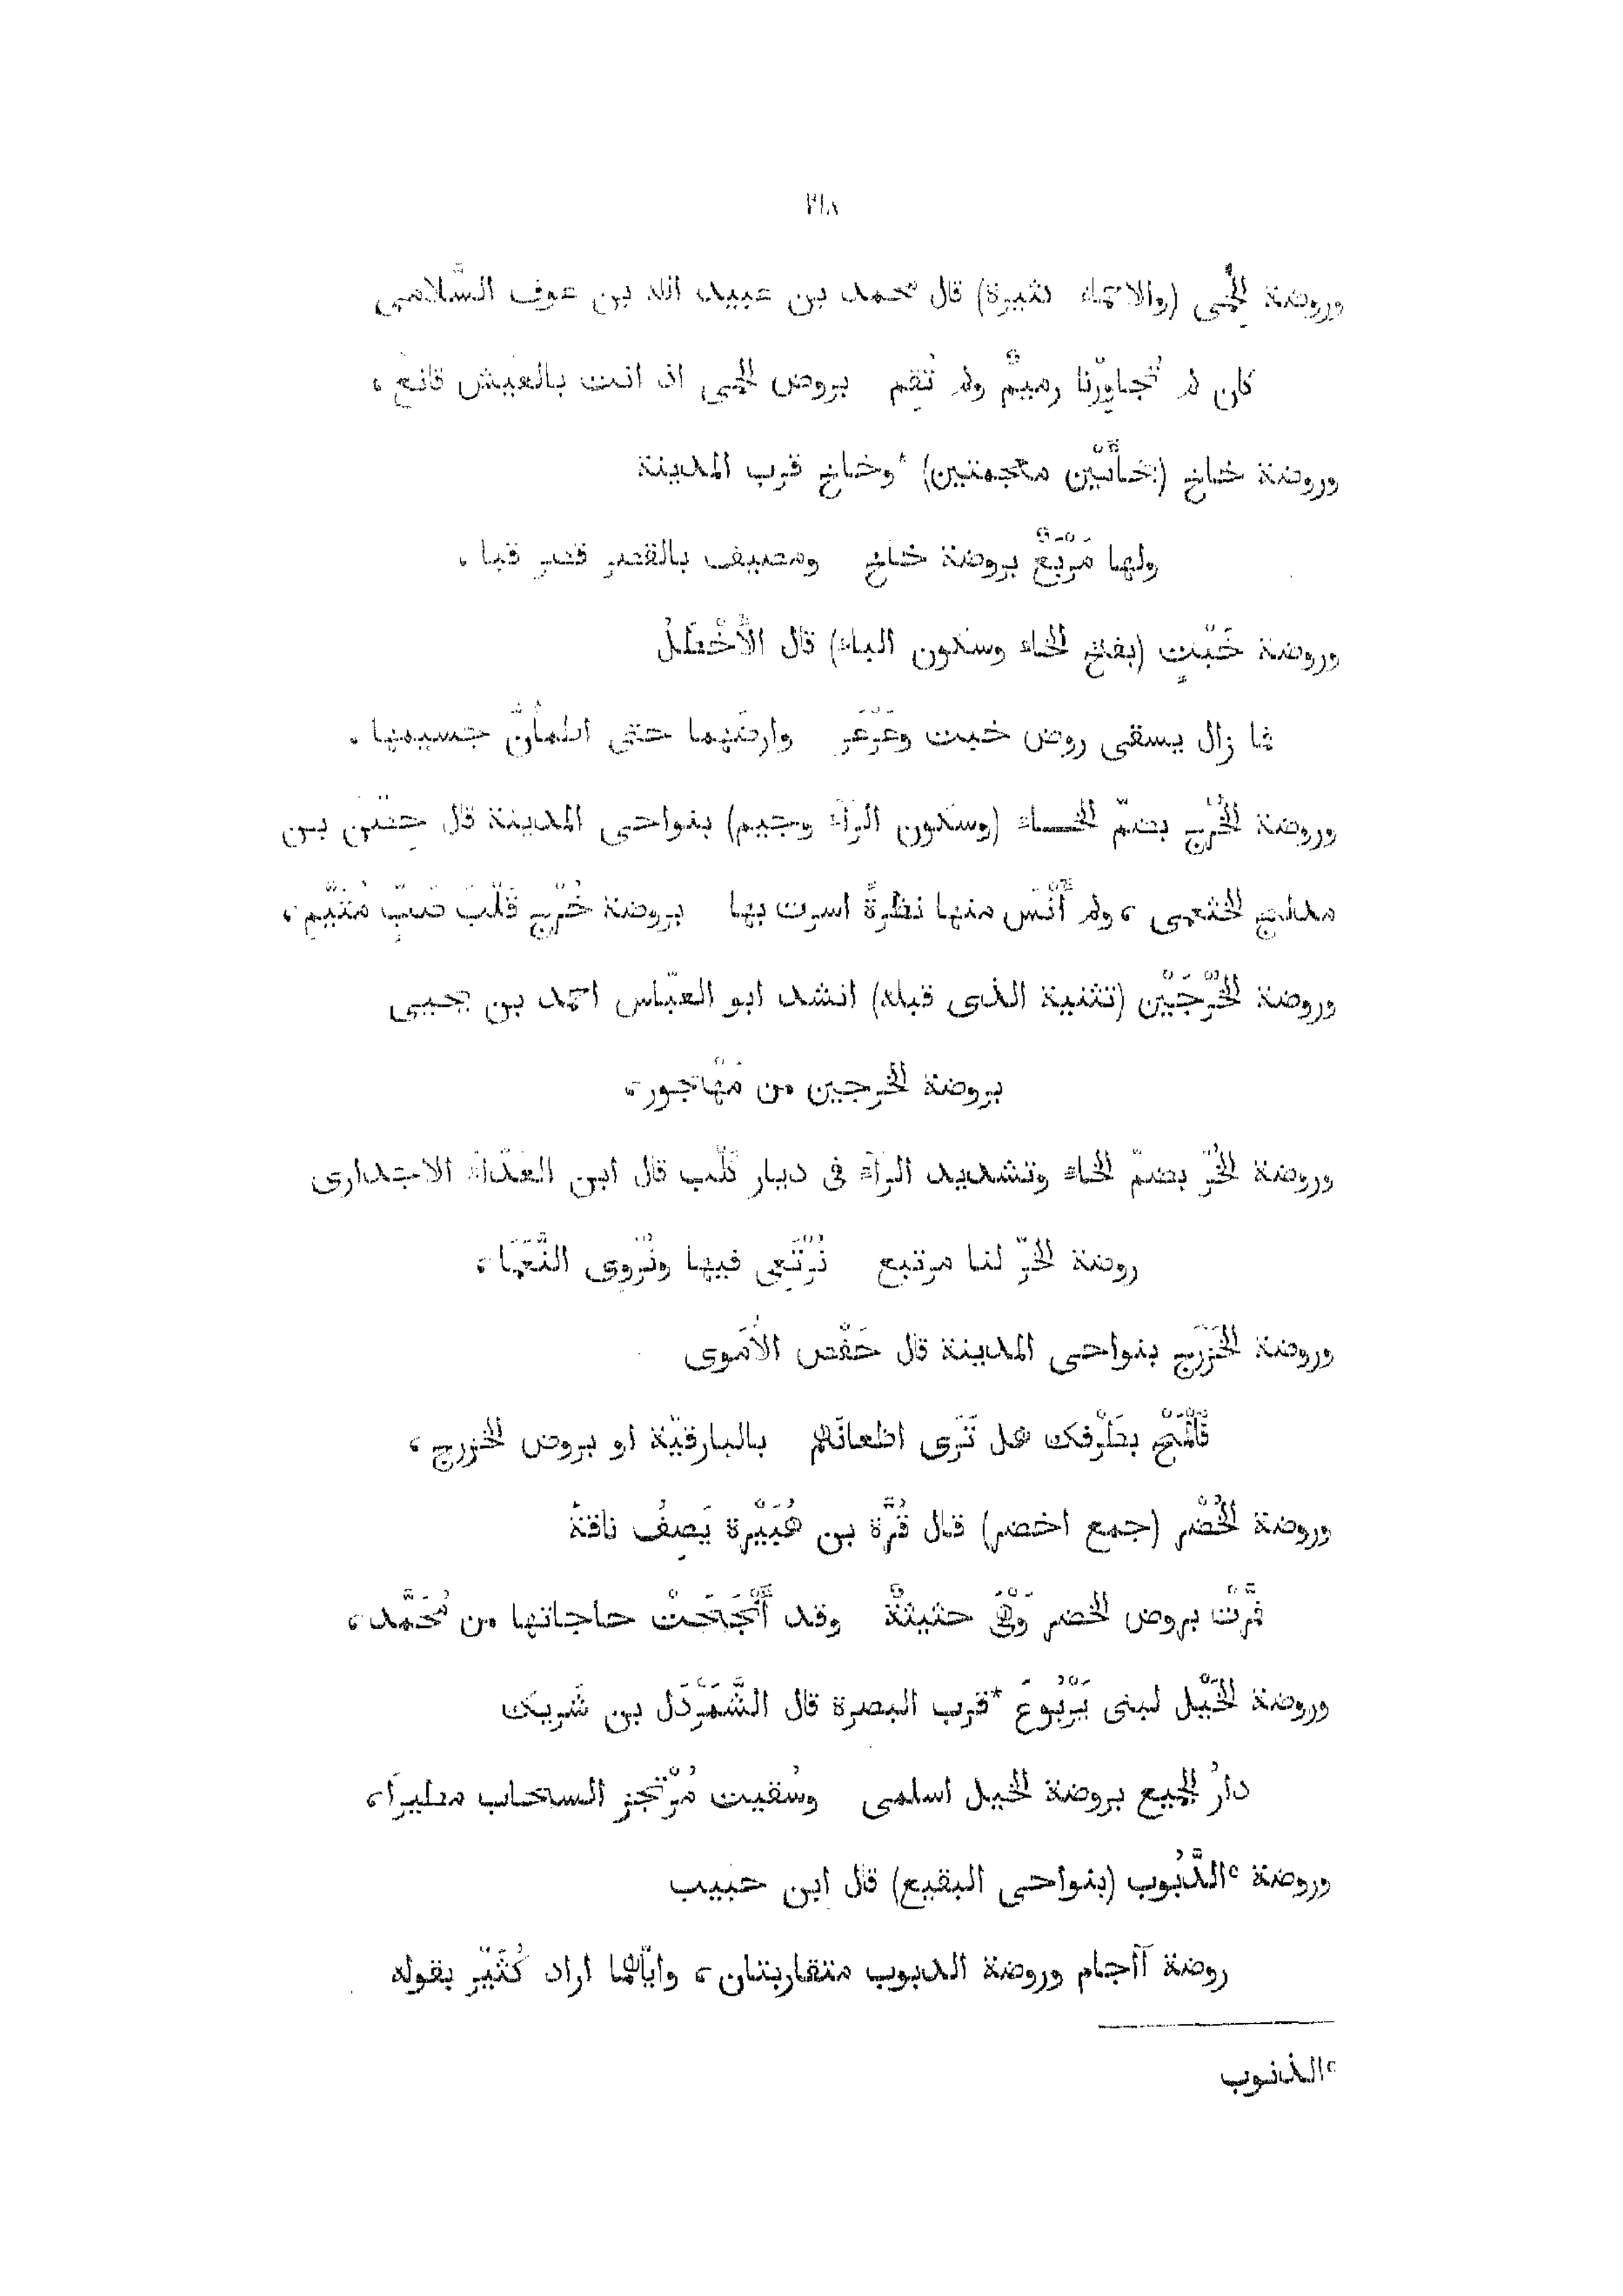 ٢١٨
وروضة الحِمى (والاحماء كثيرة) قال محمد بن عبيد الله بن عوف السَّلامى
كان لم تُجاوِرْنا رميمٌ ولم نُقِم بروض الحمى اذ انت بالعيش قانعُ ،
وروضة خاخ (بخاءَيْن معجمتين) *وخاخ قرب المدينة
ولها مَرْبَعٌ بروضة خاخ ومصيف بالقصر قصر قبا ،
وروضة خَبْتٍ (بفتح الخاء وسكون الباء) قال الأَخْطَلُ
فما زال يسقى روض خبت وعَرْعَر وارضَهما حتى اطمأَنَّ جسيمها ،
وروضة الخُرْج بضمّ الخاء (وسكون الراء وجيم) بنواحى المدينة قال حِصْن بن
مدلج الخثعمى ، ولم أَنْسَ منها نظرةً اسرت بها بروضة خُرْج قَلْبَ صَبٍّ مُتَيَّمِ ،
وروضة الخُرْجَيْن (تثنية الذى قبله) انشد ابو العبّاس احمد بن يحيى
بروضة الخرجين من مَهْجور ،
وروضة الخُرّ بضمّ الخاء وتشديد الراء فى ديار كَلْب قال ابن العَدّاء الاجدارى
روضة الخرّ لنا مرتبع نَرْتَعِى فيها ونُرْوِى النَّعَمَا ،
وروضة الخَزْرَج بنواحى المدينة قال حَفْص الأُمَوى
فَالْمَحْ بطَرْفك هل تَرَى اظعانَهم بالبارقيّة او بروض الخزرج ،
وروضة الخُضْر (جمع اخضر) قال قُرَّة بن هُبَيْرة يَصِفُ ناقةً
فمَرَّتْ بروض الخضر وَهْىَ حثيثةٌ وقد أَنْجَحَتْ حاجاتها من مُحَمَّد ،
وروضة الخَيْل لبنى يَرْبُوعَ *قرب البصرة قال الشَّمَرْدَل بن شَريك
دارُ الجميع بروضة الخيل اسلمى وسُقيت مُرْتجز السحاب مطيرَا ،
وروضة ᶜالدَّبُوب (بنواحى البقيع) قال ابن حبيب
روضة آاجام وروضة الدبوب متقاربتان ، وايّاهما اراد كُثَيّر بقوله
ᶜالذنوب